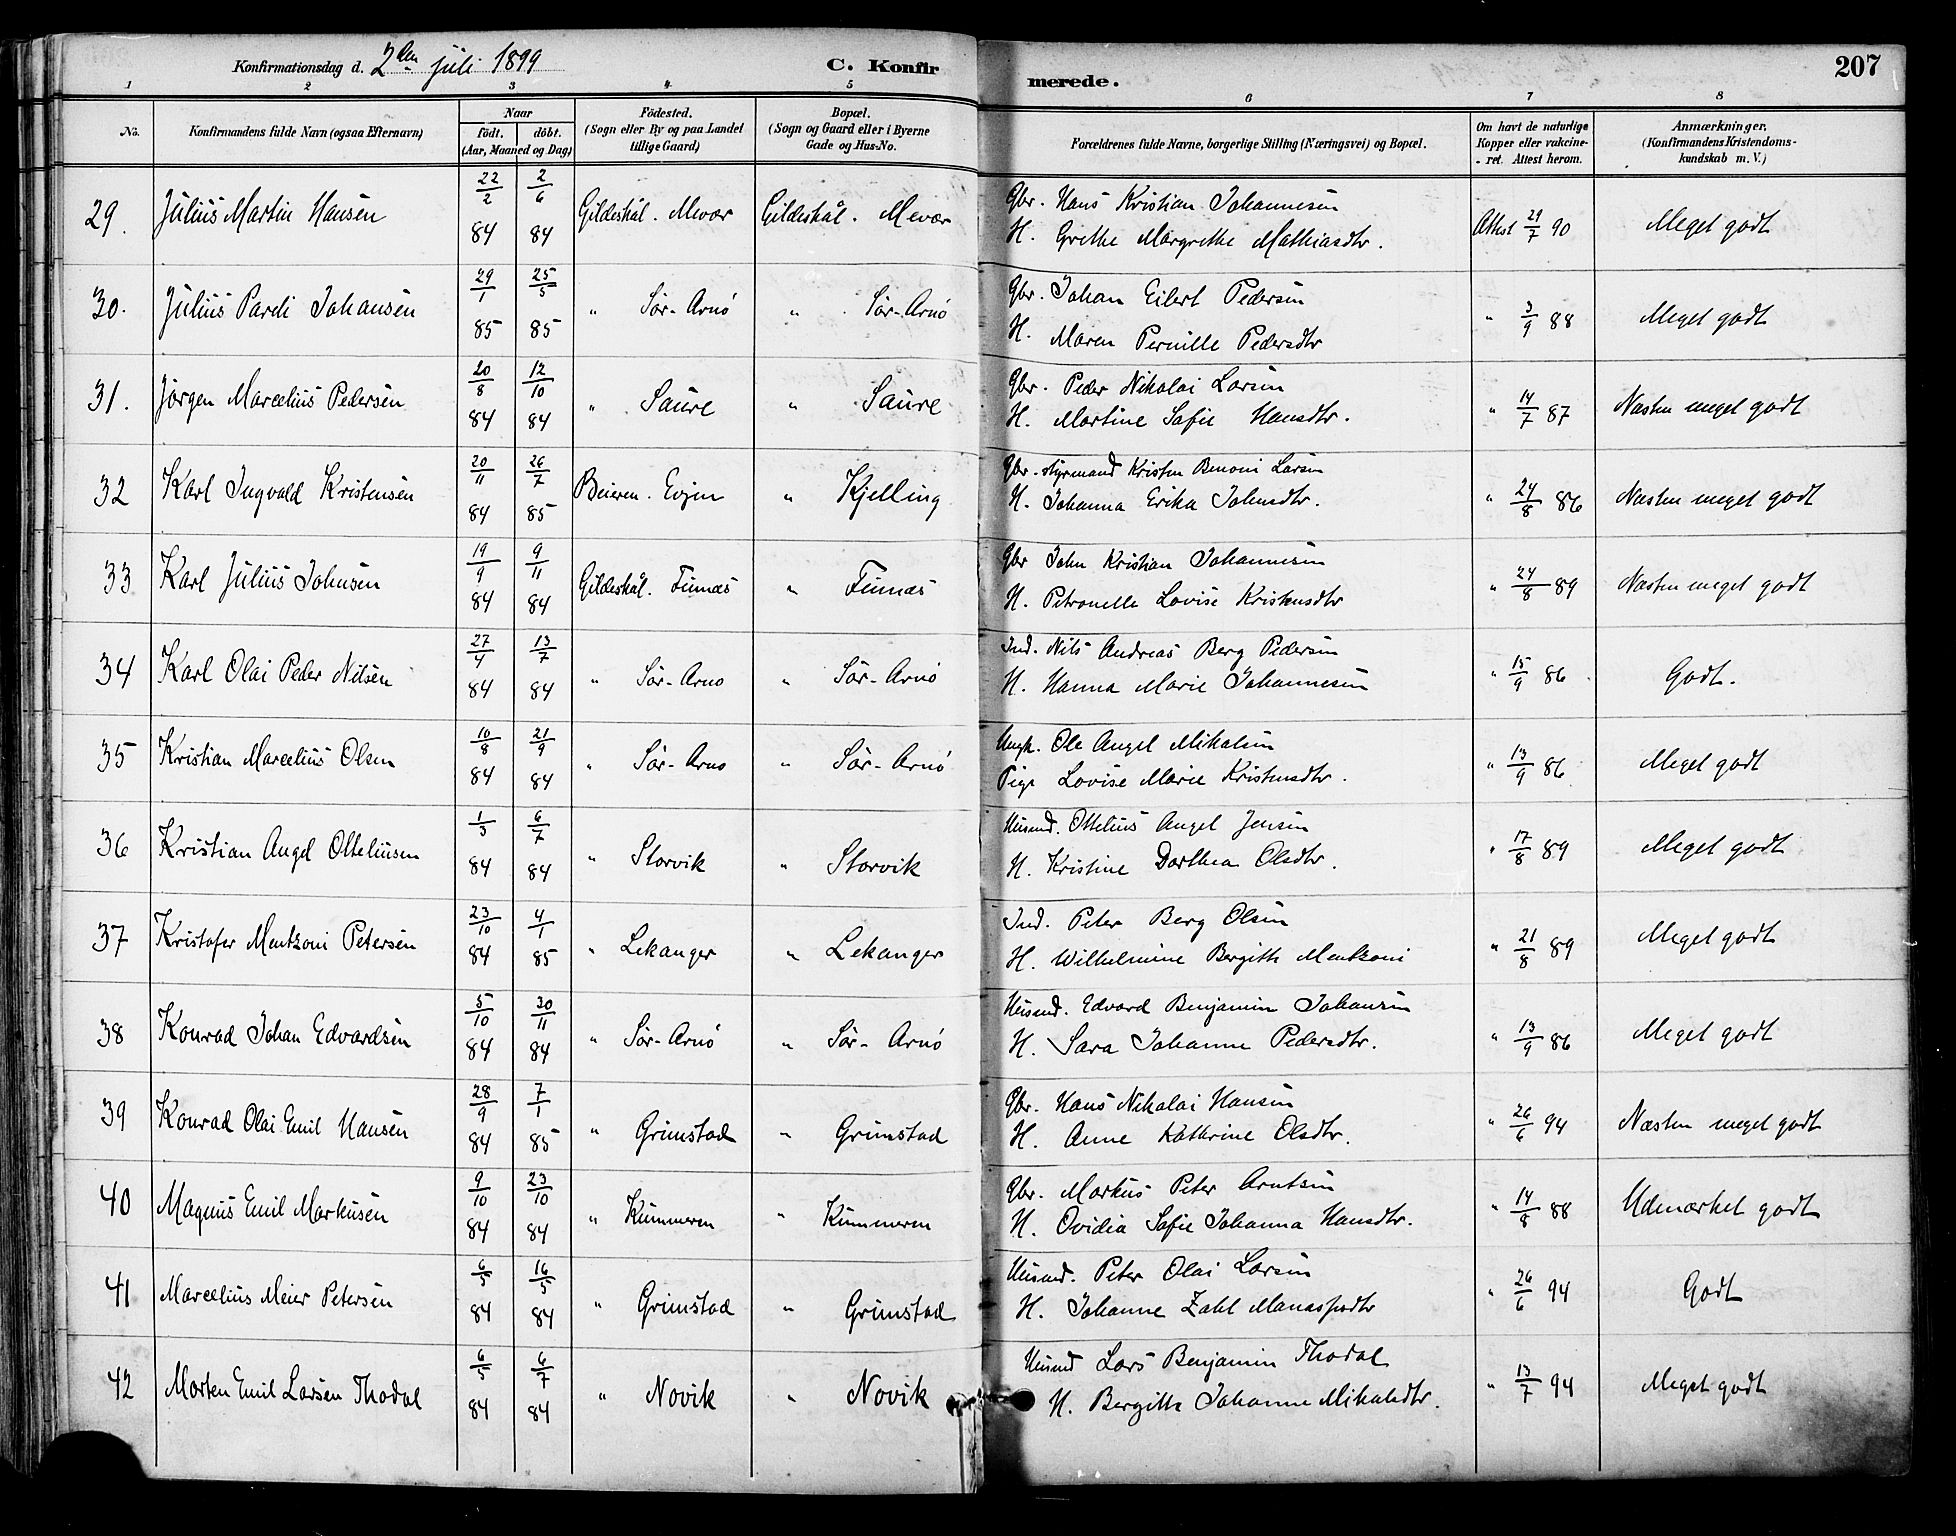 Konfirmationsdag d. 2den juli 1899 C. Konfirmerede. 207
1 2 3 4 5 6 7 8
No. Konfirmandens fulde Navn (ogsaa Efternavn) Naar født. døbt. (Aar, Maaned og Dag) Fødested. (Sogn eller By og paa Landet tillige Gaard) Bopæl. (Sogn og Gaard eller i Byerne Gade og Hus-No. Forældrenes fulde Navne, borgerlige Stilling (Næringsvei) og Bopæl. Om havt de naturlige Kopper eller vakcineret. Attest herom. Anmærkninger. (Konfirmandens Kristendomskundskab m. V.)
29. Julius Martin Hansen 22/2 84 2/6 84 Gildeskål. Mevær Gildeskål. Mevær Gbr. Hans Kristian Johannesen
H. Grethe Margrethe Mathiasdtr. Attest 29/7 90 Meget godt
30. Julius Pareli Johansen 29/1 85 25/5 85 " Sør-Arnø " Sør-Arnø Gbr. Johan Eilert Pedersen
H. Maren Pernille Pedersdtr " 3/9 88 Meget godt
31. Jørgen Marcelius Pedersen 20/8 84 12/10 84 " Saure " Saure Gbr. Peder Nikolai Larsen
H. Martine Safie Hansdtr. " 14/7 87 Næsten meget godt
32 Karl Ingvald Kristensen 20/11 84 26/7 85 Beieren. Evjen " Kjelling Gbr. styrmand Kristen Benoni Larsen
H. Johanna Erika Johnsdtr. " 24/8 86 Næsten meget godt
33 Karl Julius Johnsen 19/9 84 9/11 84 Gildeskål. Finnæs " Finnæs Gbr John Kristian Johannesen
H. Petronelle Lovise Kristensdtr " 24/8 89 Næsten meget godt
34 Karl Olai Peder Nilsen 27/4 84 13/7 84 " Sør-Arnø " Sør-Arnø Ind. Nils Andreas Berg Pedersen
H. Hanna Marie Johannesen " 15/9 86 Godt.
35 Kristian Marcelius Olsen 10/8 84 21/9 84 " Sør-Arnø " Sør-Arnø Ungk. Ole Angel Mikalsen
Pige Lovise Marie Kristensdtr. " 13/9 86 Meget godt
36 Kristian Angel Otteliusen 1/3 84 6/7 84 " Storvik " Storvik Husmd. Ottelius Angel Jensen
H. Kristine Dorthea Olsdtr. " 17/8 89 Meget godt
37 Kristofer Mentzoni Petersen 23/10 84 4/1 85 " Lekanger " Lekanger Ind. Peter Berg Olsen
H. Wilhelmine Bergithe Mentzoni " 21/8 89 Meget godt
38 Konrad Johan Edvardsen 5/10 84 30/11 84 " Sør-Arnø " Sør-Arnø Husmd. Edvard Benjamin Johansen
H. Sara Johanne Pedersdtr. " 13/9 86 Meget godt
39 Konrad Olai Emil Hansen 28/9 84 7/1 85 " Grimstad " Grimstad Gbr. Hans Nikolai Hansen
H. Anne Kathrine Olsdtr. " 26/6 94 Næsten meget godt
40 Magnus Emil Markusen 9/10 84 23/10 84 " Kummeren " Kummeren Gbr. Markus Peter Arntsen
H. Ovidia Safie Johanna Hansdtr. " 14/8 88 Udmærket godt
41 Marcelius Meier Petersen 6/5 84 16/5 84 " Grimstad " Grimstad Husmd. Peter Olai Larsen
H. Johanne Zahl Manassesdtr " 26/6 94 Godt
42 Morten Emil Larsen Thodal 6/5 84 6/7 84 " Novik " Novik Husmd Lars Benjamin Thodal
H. Bergitte Johanne Mikalsdtr. " 13/7 94 Meget godt